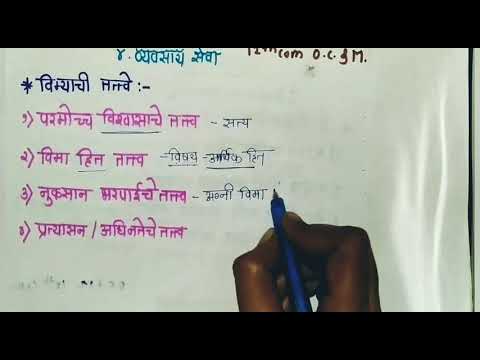 ४. व्यवसाय सेवा 12th com O.C.&M.
* विम्याची तत्त्वे :-
१) परमोच्च विश्वासाचे तत्त्व - सत्य
२) विमा हित तत्त्व - विषय - आर्थिक हित
३) नुकसान भरपाईचे तत्त्व - अग्नी विमा
४) प्रत्यासन / अधिनतेचे तत्त्व